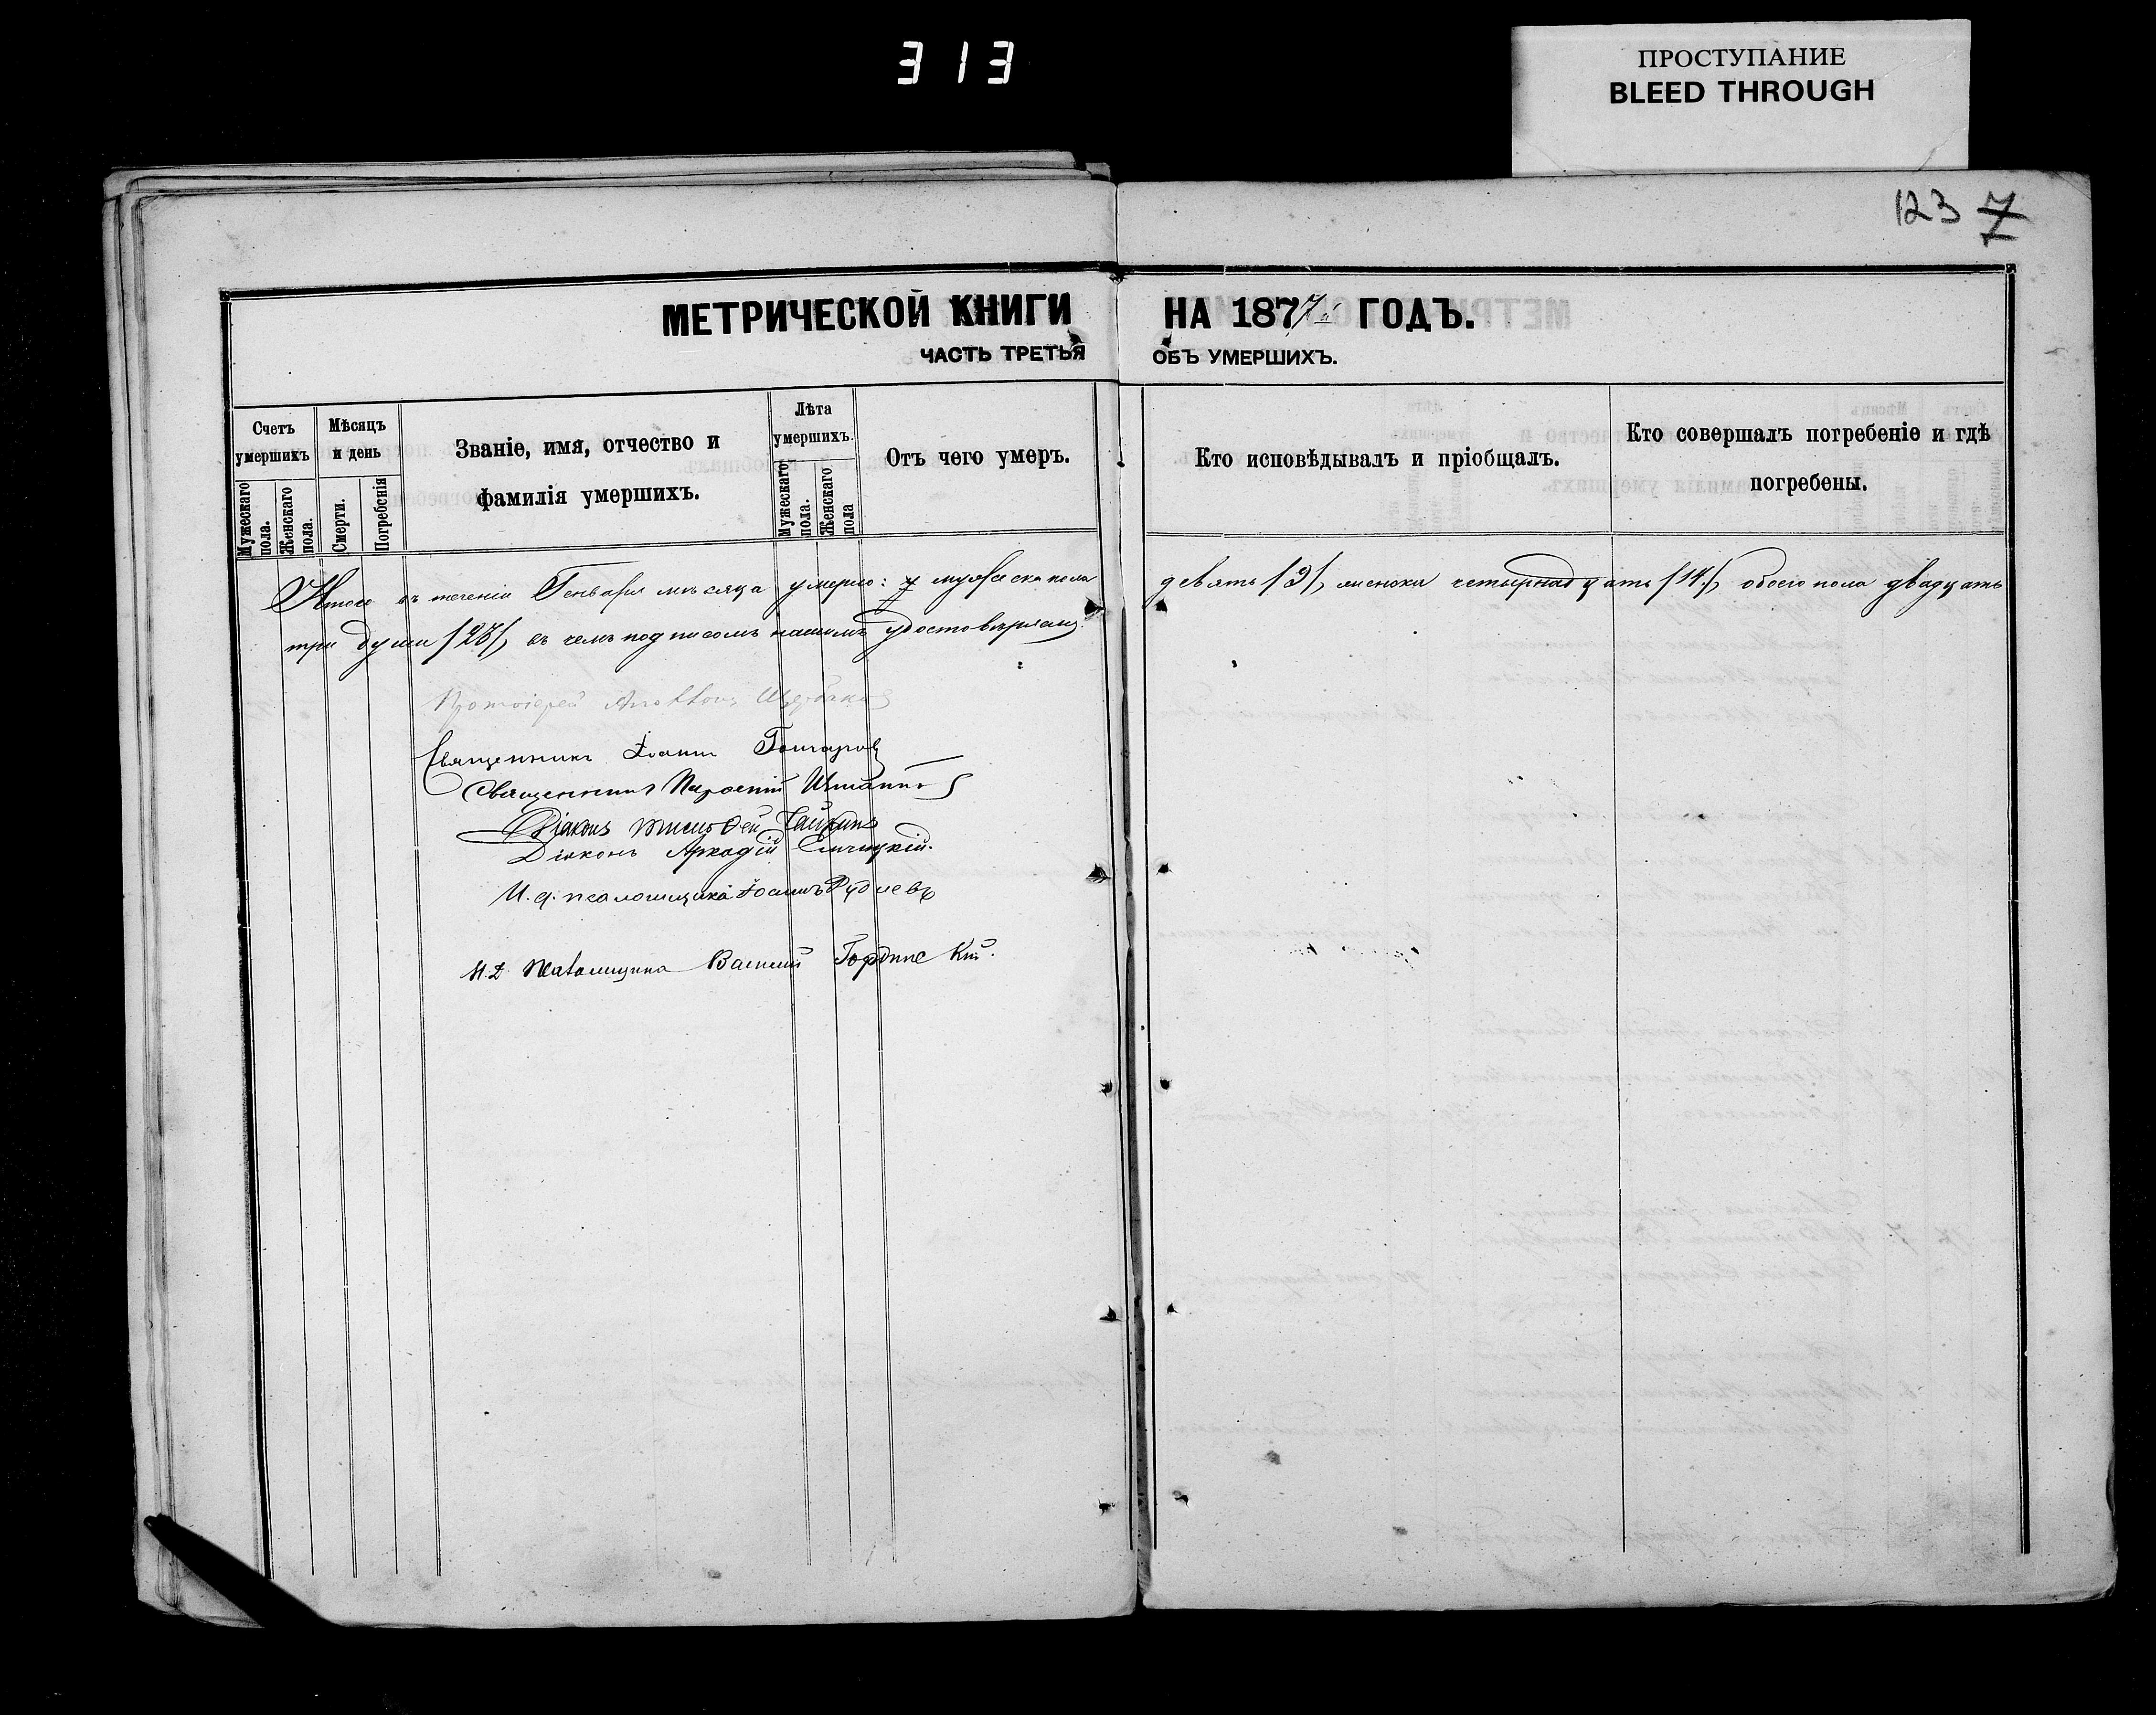 313
ПРОСТУПАНИЕ
BLEED THROUGH
123 7
МЕТРИЧЕСКОЙ КНИГИ НА 1877 ГОДЪ.
ЧАСТЬ ТРЕТЬЯ ОБЪ УМЕРШИХЪ.
Счетъ умершихъ
Мужескаго пола.
Женскаго пола.
Мѣсяцъ и день
Смерти.
Погребенія
Званіе, имя, отчество и фамилія умершихъ.
Лѣта умершихъ.
Мужескаго пола.
Женскаго пола
Отъ чего умеръ.
Кто исповѣдывалъ и пріобщалъ.
Кто совершалъ погребеніе и гдѣ погребены.
Итого въ теченіи Генваря мѣсяца умерло: мужеска пола девять /9/, женска четырнадцать /14/, обоего пола двадцать
три души /23/, въ чемъ подписомъ нашимъ удостовѣряемъ.
Протоіерей Щербаковъ
Священникъ Іоаннъ Гончаровъ
Священникъ
Діаконъ Тимоѳей
Діаконъ Аркадій
И. д. псаломщика Іоаннъ Рудневъ
И. д. псаломщика Василій